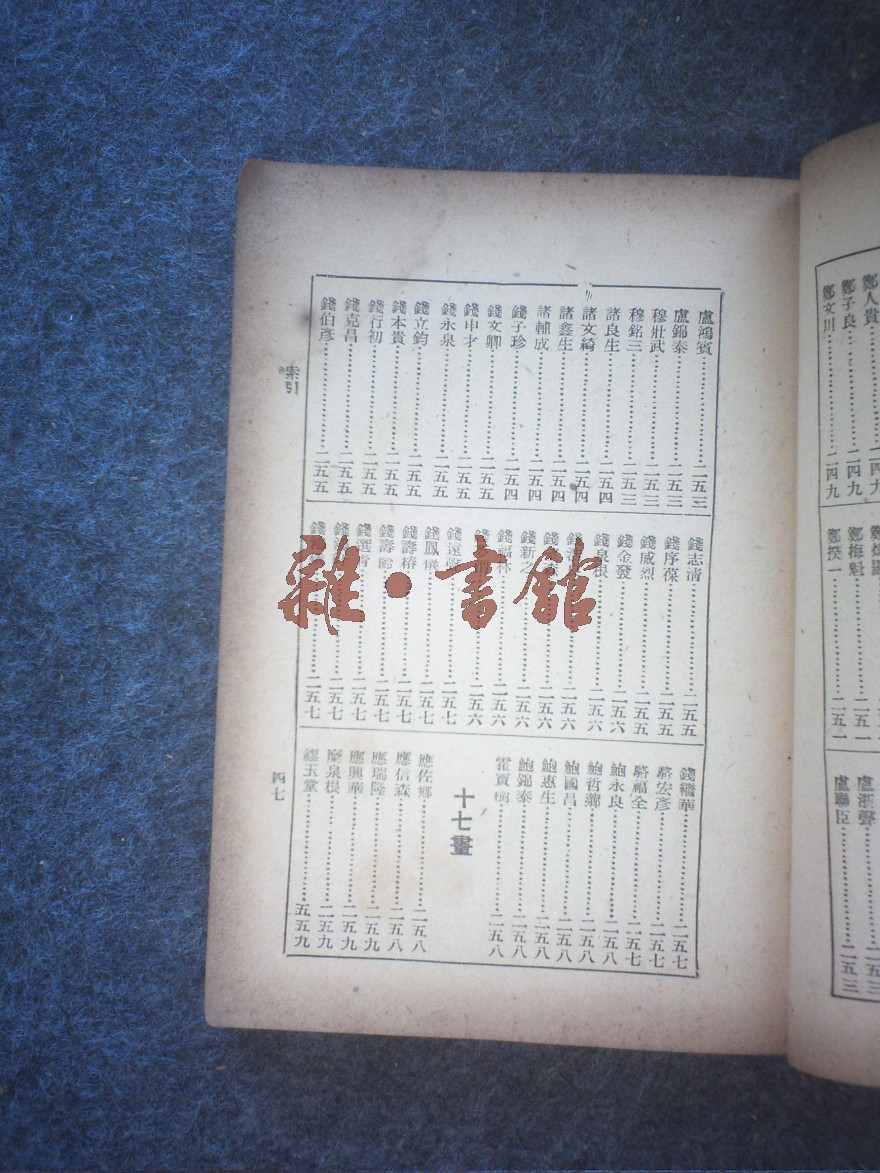 盧鴻賓……二五三
盧錦泰……二五三
穆壯武……二五三
穆銘三……二五三
諸良生……二五四
諸文綺……二五四
諸鑫生……二五四
諸輔成……二五四
錢子珍……二五四
錢文卿……二五五
錢申才……二五五
錢永泉……二五五
錢立鈞……二五五
錢本貴……二五五
錢行初……二五五
錢克昌……二五五
錢伯彥……二五五
錢志清……二五五
錢序葆……二五五
錢威烈……二五五
錢金發……二五六
錢泉根……二五六
二五六
二五六
錢新之……二五六
錢福林……二五六
二五六
錢遠……二五七
錢鳳……二五七
錢壽椿……二五七
錢壽齡……二五七
錢選青……二五七
二五七
二五七
錢繼華……二五七
駱宏彥……二五七
駱福全……二五七
鮑永良……二五八
鮑哲……二五八
鮑國昌……二五八
鮑惠生……二五八
鮑錦泰……二五八
霍寶樹……二五八
十七畫
應佐鄉……二五八
應信森……二五八
應瑞隆……二五九
應興華……二五九
糜泉根……二五九
繆玉堂……五五九
索引
四七
雜·書館
鄭人貴
鄭子良……二四九
鄭文川……二四九
鄭梅魁……二五一
鄭揆一……二五一
盧淑聲……二五三
盧聯臣……二五三